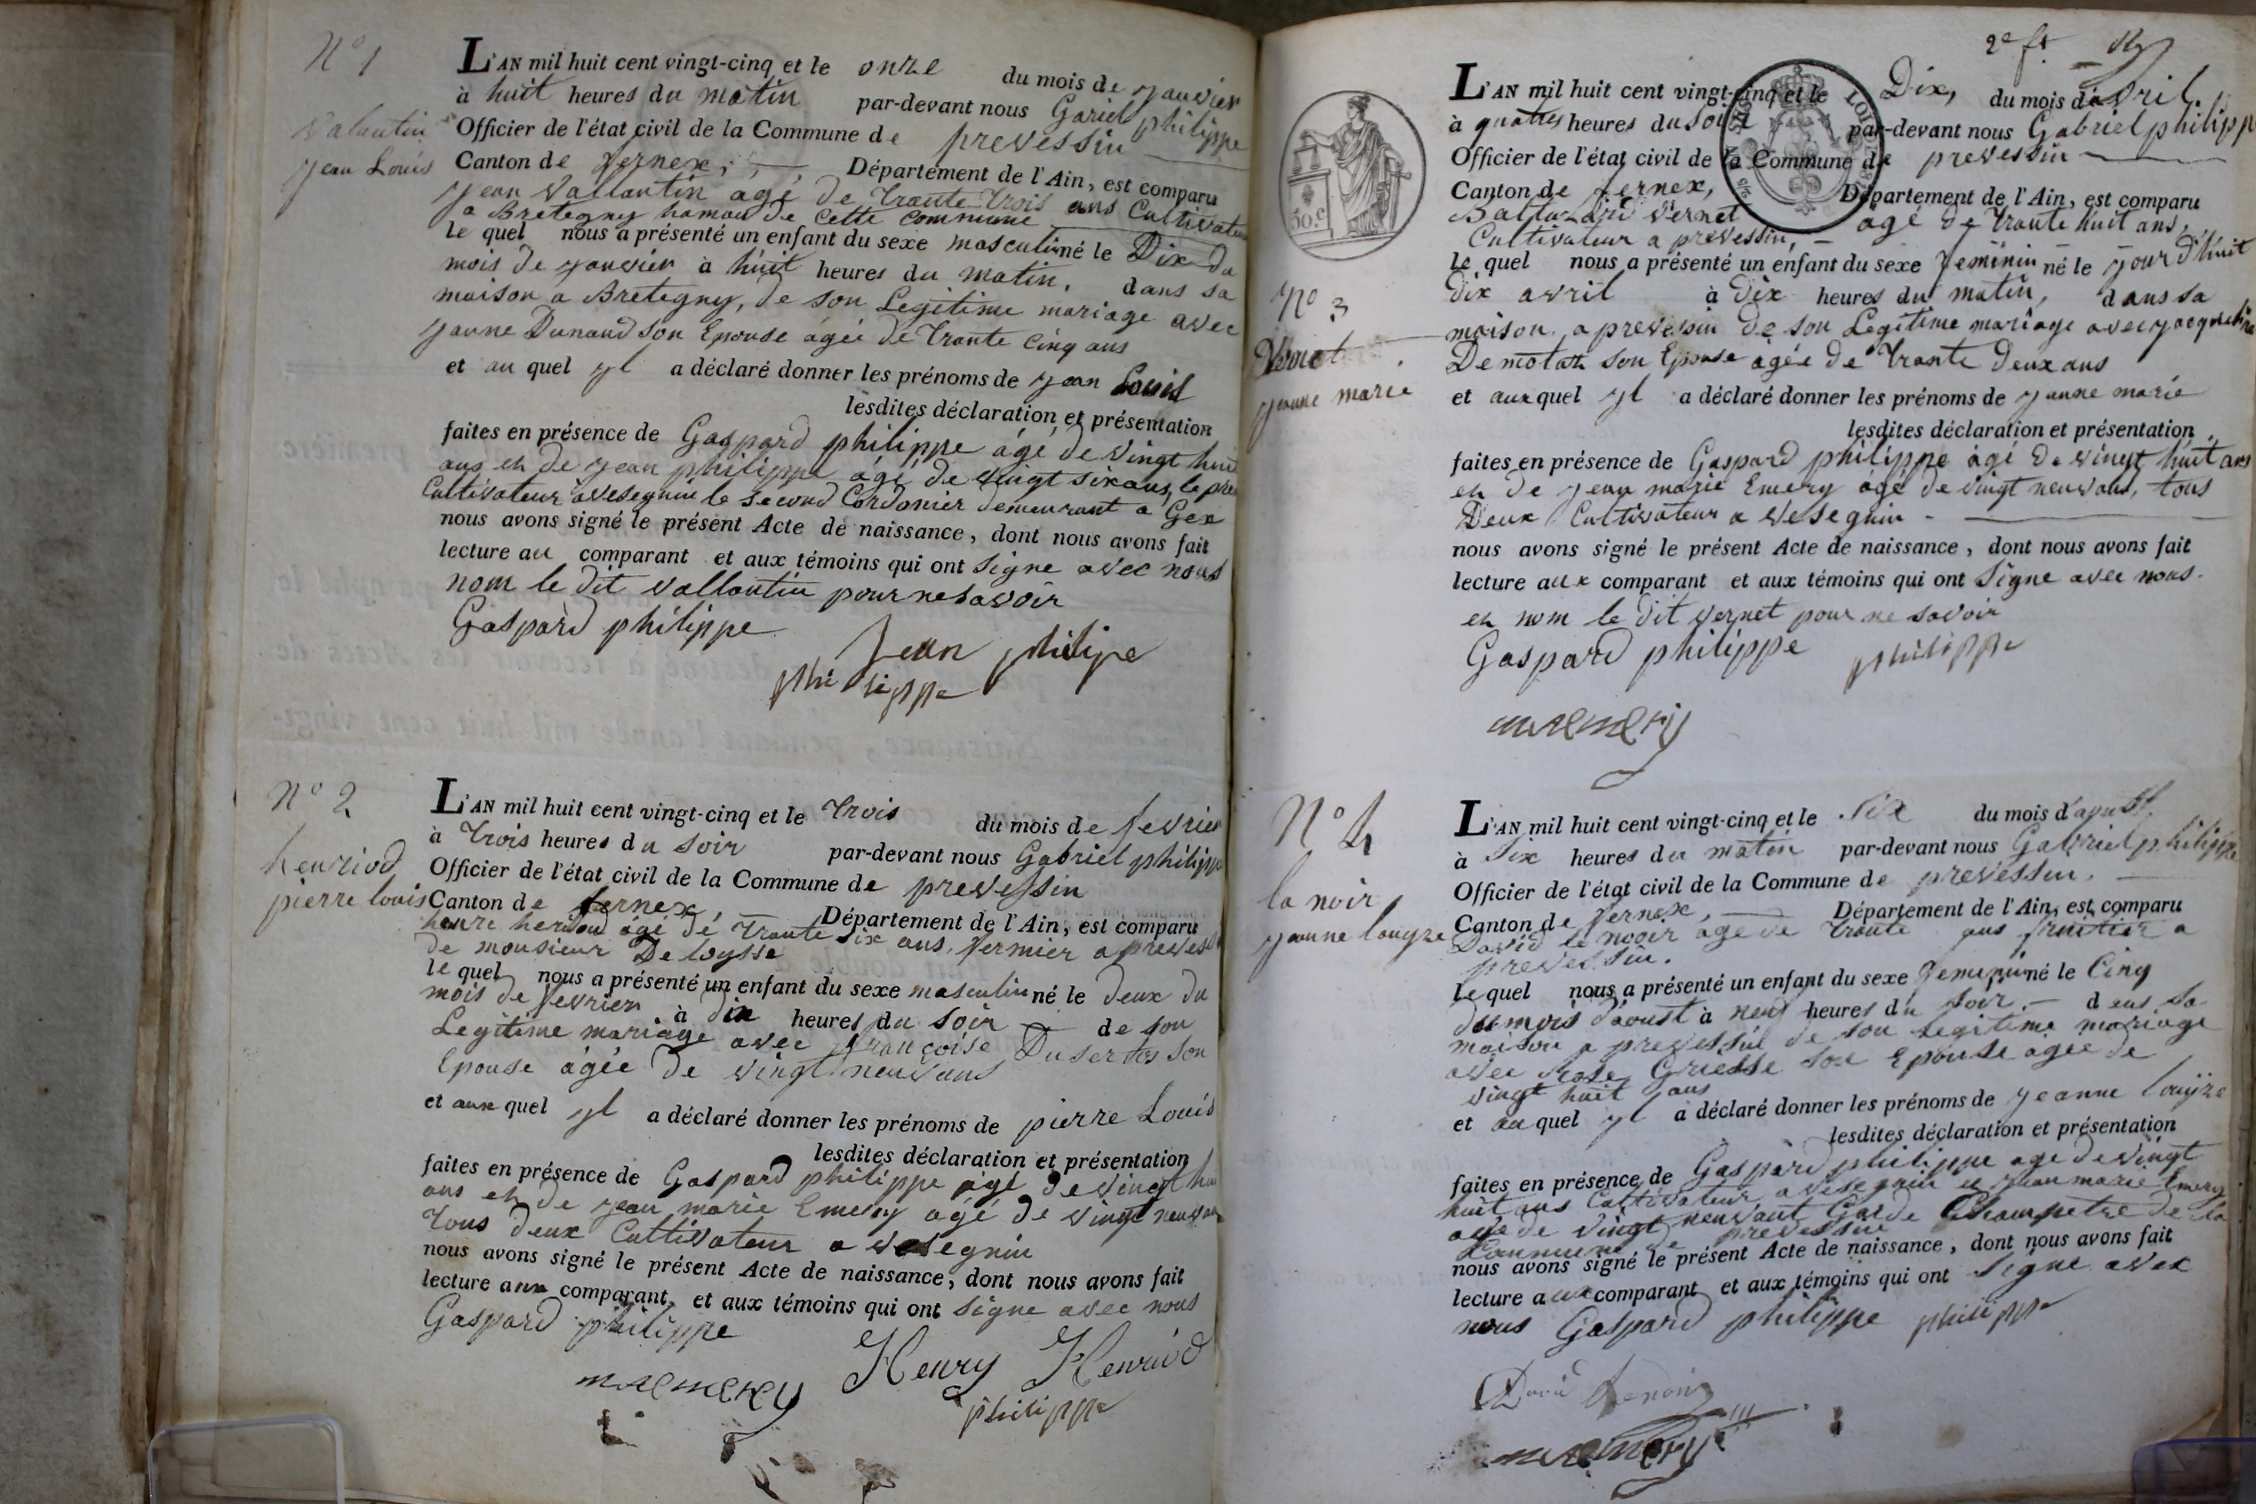 N° 1
valantin
jean Louis
L'AN mil huit cent vingt-cinq et le onze du mois de janvier
à huit heures du matin par-devant nous Gariel philippe
Officier de l'état civil de la Commune de prevessin
Canton de fernex, Département de l'Ain, est comparu
jean vallantin agé de trante trois ans Cultivateur
a Bretegny hamau de cette commune
le quel nous a présenté un enfant du sexe masculin né le Dix du
mois de janvier à huit heures du matin, dans sa
maison a Bretegny, de son Legitime mariage avec
jeanne Dunand son Epouse agée de trante cinq ans
et au quel yl a déclaré donner les prénoms de jean Louis
lesdites déclaration et présentation
faites en présence de Gaspard philippe âgé de vingt huit
ans et de jean philippe âgé de vingt six ans, le pre
Cultivateur a vesegnin le second Cordonier demeurant a Gex
nous avons signé le présent Acte de naissance, dont nous avons fait
lecture au comparant et aux témoins qui ont signe avec nous
nom le dit vallantin pour ne savoir
Gaspard philippe
jean philipe
philippe
N° 2
henriod
pierre louis
L'AN mil huit cent vingt-cinq et le trois du mois de fevrier
à trois heures du soir par-devant nous Gabriel philippe
Officier de l'état civil de la Commune de prevessin
Canton de fernex, Département de l'Ain, est comparu
henre heriod âgé de trante six ans, fermier a preves
de monsieur Deloysse
le quel nous a présenté un enfant du sexe masculin né le deux du
mois de fevrier à dix heures du soir de son
Legitime mariage avec françoise Dusertos son
Epouse âgée de vingt neuv ans
et aux quel yl a déclaré donner les prénoms de pierre Louis
lesdites déclaration et présentation
faites en présence de Gaspard philippe âgé de vingt hu
ans et de jean marie Emery agé de vingt neuv ans
tous deux Cultivateur a vesegnin
nous avons signé le présent Acte de naissance, dont nous avons fait
lecture aux comparant, et aux témoins qui ont signe avec nous
Gaspard philippe
m emery Henry Henriod
philippe
2e ft
L'AN mil huit cent vingt-cinq et le Dix, du mois d'avril
à quatres heures du soir par-devant nous Gabriel philipp
Officier de l'état civil de la Commune de prevessin
Canton de fernex, Département de l'Ain, est comparu
Baltazard vernet agé de trante huit ans,
Cultivateur a prevessin,
le quel nous a présenté un enfant du sexe feminin né le jour d'huit
dix avril à dix heures du matin, dans sa
N° 3
Vernet
jeanne marie
50.c
maison a prevessin de son Legitime mariage avec jacqueline
Demotaz son Epouse agée de trante deux ans
et aux quel yl a déclaré donner les prénoms de jeanne marie
lesdites déclaration et présentation
faites en présence de Gaspard philippe âgé de vingt huit ans
et de jean marie Emery âgé de vingt neuv ans, tous
Deux Cultivateur a vesegnin
nous avons signé le présent Acte de naissance, dont nous avons fait
lecture aux comparant et aux témoins qui ont signe avec nous.
et nom le dit vernet pour ne savoir
Gaspard philippe philippe
m emery
N° 4
la noir
jeanne louyze
L'AN mil huit cent vingt-cinq et le six du mois d'aoust
à six heures du matin par-devant nous Gabriel philippe
Officier de l'état civil de la Commune de prevessin.
Canton de fernex, Département de l'Ain, est comparu
David le nooir age de trante ans fruitier a
prevessin.
le quel nous a présenté un enfant du sexe feminin né le Cinq
du mois d'aoust à neuf heures du soir, dens sa
maison a prevessin de son Legitime mariage
avec Rose Griesse son Epouse agée de
vingt huit ans
et au quel yl a déclaré donner les prénoms de jeanne louyze
lesdites déclaration et présentation
faites en présence de Gaspard philippe age de vingt
huit ans Cultivateur a vesegnin et jean marie Emery
age de vingt neuv ant Garde Champetre de la
Commune de prevessin
nous avons signé le présent Acte de naissance, dont nous avons fait
lecture aux comparant et aux témoins qui ont signe avec
nous Gaspard philippe philippe
David Lenoir
m emery